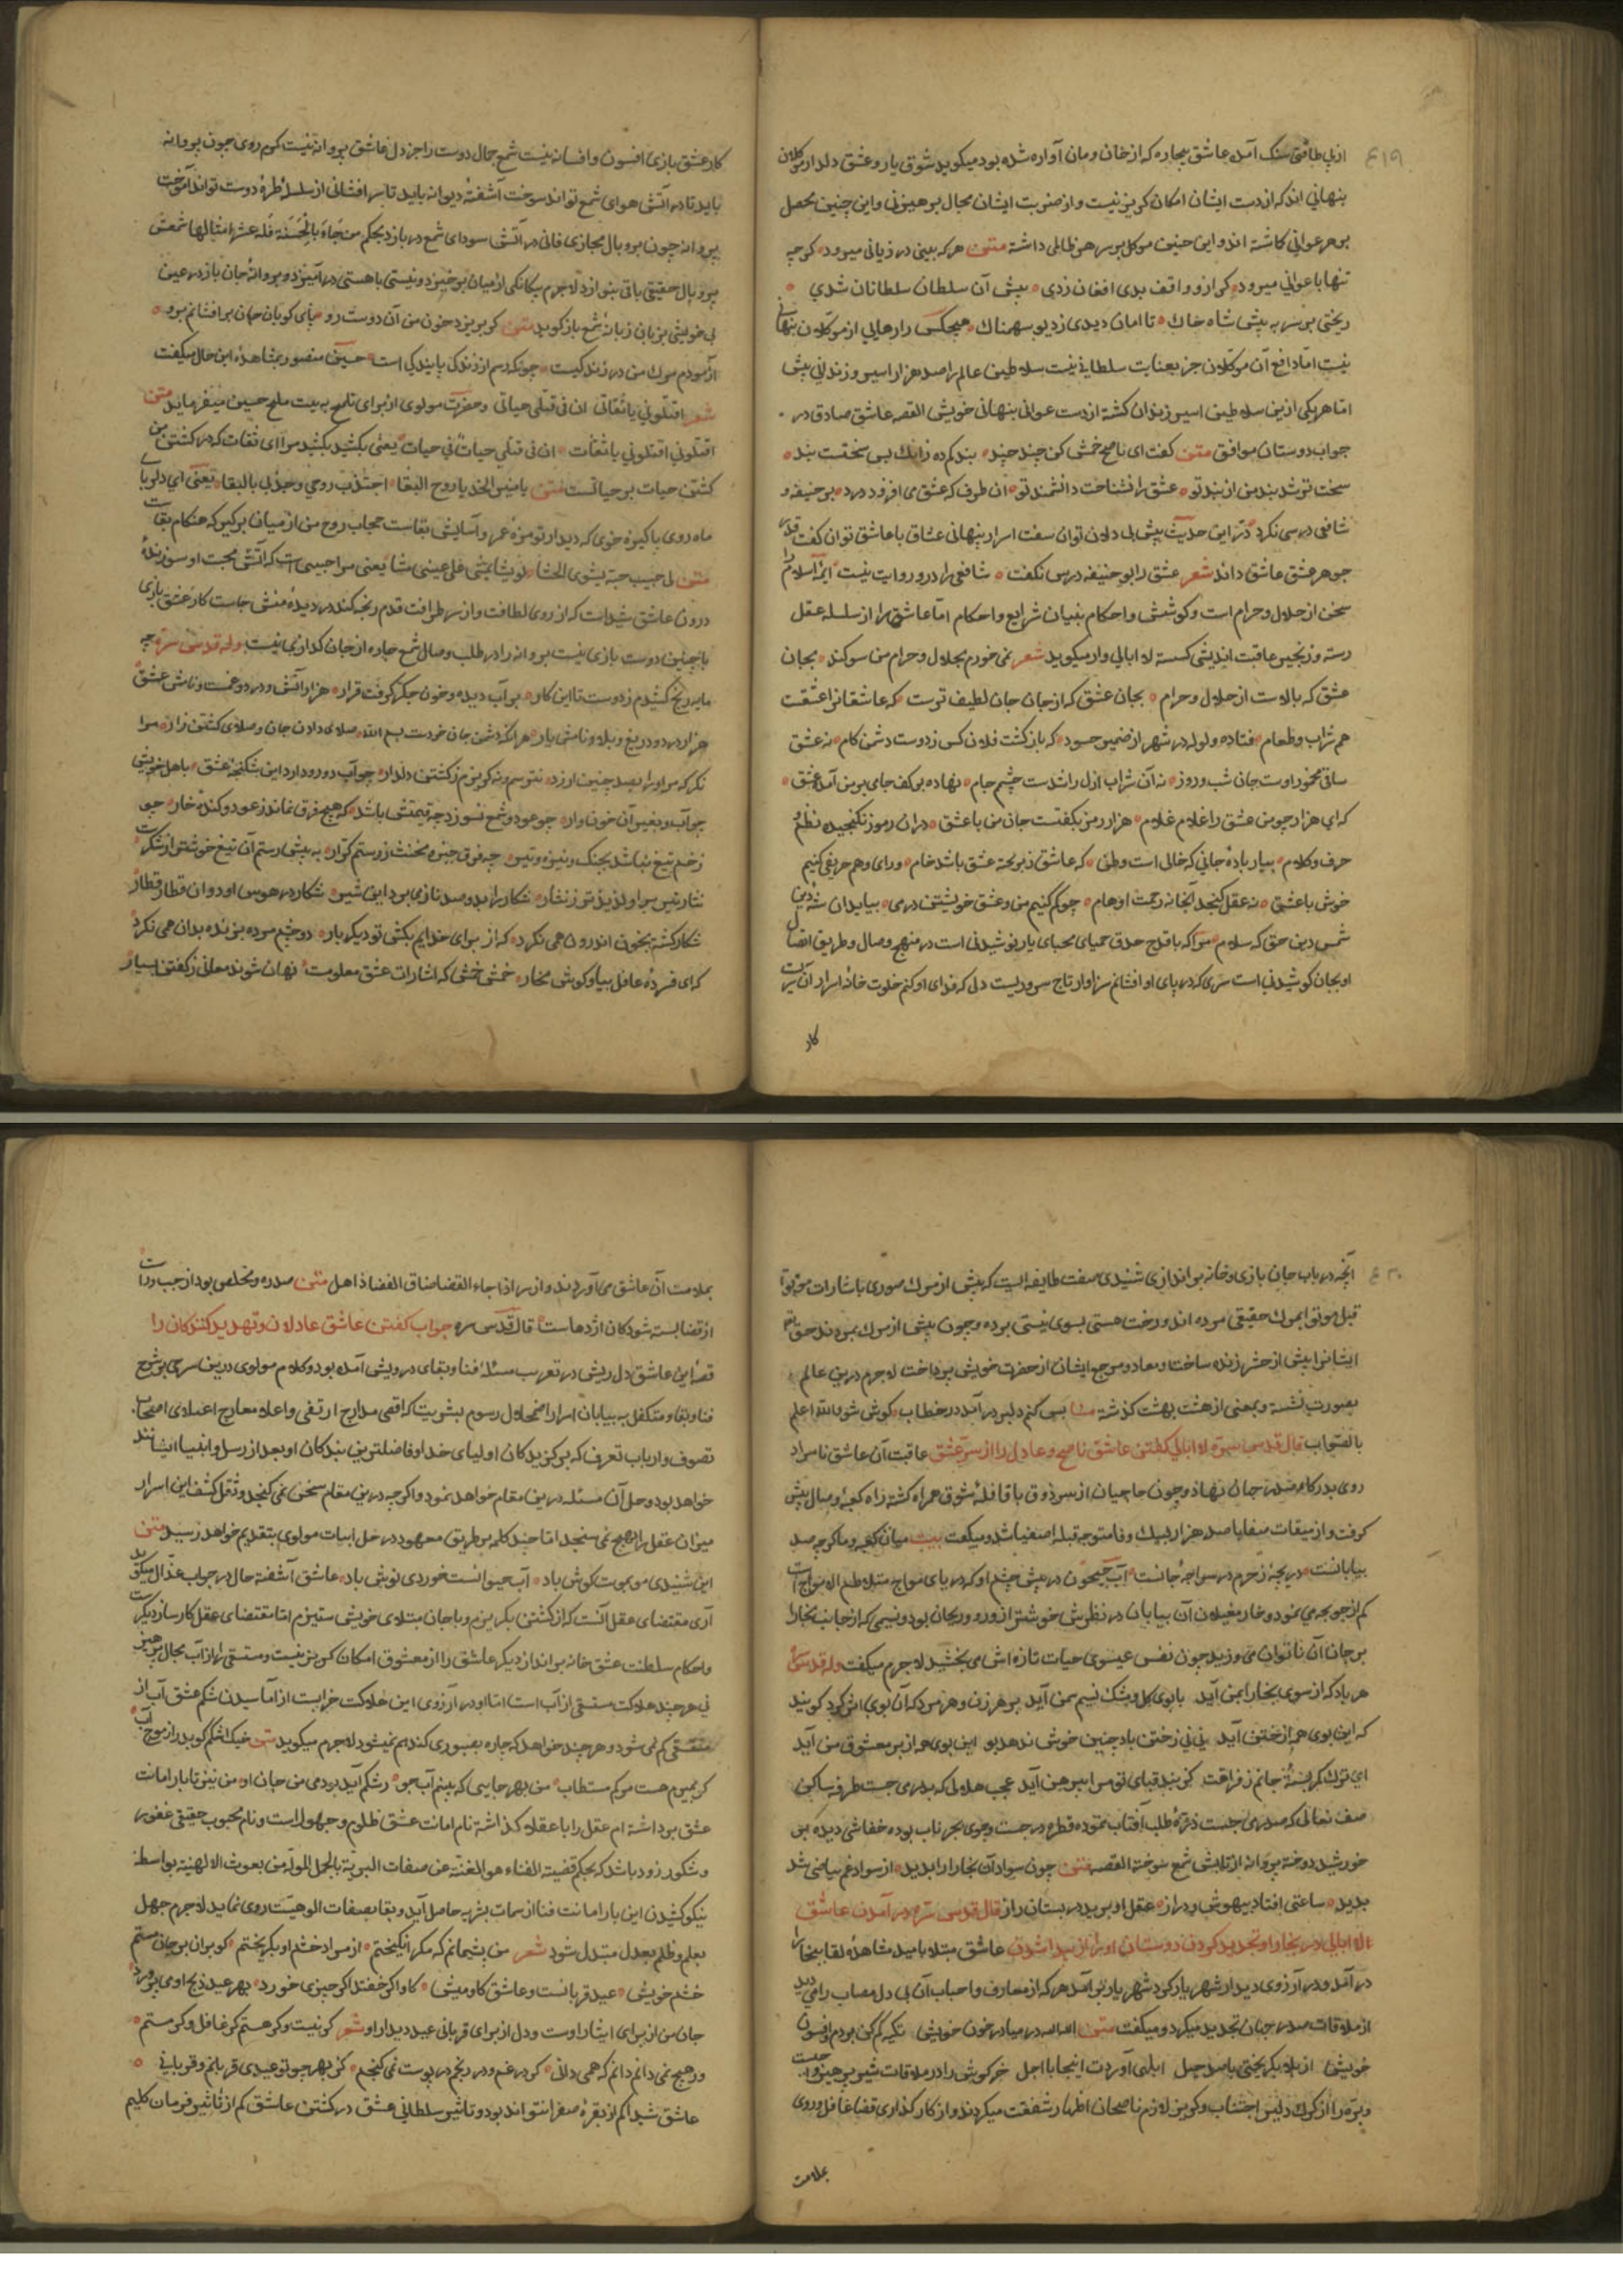 ۴۱۹
از پی طاقتی سنک آمده عاشق بیچاره که از خان و مان آواره شده بود میکوید شوق یار و عشق دلدار موکلان
پنهانی اند که از دست ایشان امکان کریز نیست و از ضربت ایشان مجال پرهیز نی و این چنین محصل
بر هر عوانی کاشته اند و این چنین موکل بر سر هر ظالمی داشته متن هر که بینی در زیانی میرود کر چه
تنها با عوانی میرود کر ازو واقف بدی افغان زدی پیش آن سلطان سلطانان شدی
ریختی بر سر به پیش شاه خاک تا امان دیدی ز دیو سهمناک هیچکس را رهایی از موکلان پنهانی
نیست اما دافع آن موکلان جز بعنایت سلطانی نیست سلاطین عالم را صد هزار اسیر و زندانی پیش
اما هر یکی ازین سلاطین اسیر زندان کشته از دست عوانی پنهانی خویش القصه عاشق صادق در
جواب دوستان موافق متن کفت ای ناصح خمش کن چند چند پند کم ده زانک بس سختست بند
سخت تر شد بند من از پند تو عشق را نشناخت دانشمند تو آن طرف که عشق می افزود درد بو حنیفه و
شافعی درسی نکرد در این حدیث پیش بی دلان توان سفت اسرار پنهانی عشاق با عاشق توان کفت قدر
جوهر عشق عاشق داند شعر عشق را بو حنیفه درس نکفت شافعی را درو روایت نیست ائمه اسلام را
سخن از حلال و حرام است و کوشش و احکام بنیان شرایع و احکام اما عاشق را از سلسله عقل
رسته و زنجیر عاقبت اندیشی کسسته لا ابالی وار میکوید شعر نمی خورم بحلال و حرام من سوکند بجان
عشق که بالاست از حلال و حرام بجان عشق که از جان جان لطیف ترست که عاشقانرا عشقست
هم شراب و طعام فتاده ولوله در شهر از ضمیر حسود که باز کشت فلان کس ز دوست دشمن کام نه عشق
ساقی مخمور اوست جان شب و روز نه آن شراب ازل را شدست چشم جام نهاده بر کف جامی بر من آمد عشق
که ای هزار چو من عشق را غلام غلام هزار رمز بکفتست جان من با عشق در آن رموز نکنجیده نظم و
حرف و کلام بیار باده جانی که خالی است وطن که عاشق ز برحمه عشق باشد خام ورای وهم حریفی کنیم
خوش با عشق نه عقل کنجد آنجا نه زحمت اوهام چو کم کنیم من و عشق خویشتن در می بیاید آن شه دین
شمس دین حق که سلام مرا که با قدح حلق حمیای محبای یار نوشیدنی است در منهج وصال و طریق اتصال
او بجان کوشیدنی است سری که در پای او افشانم سزاوار تاج سروریست دلی که فدای او کنم خلوت خانه اسرار آن پریست
کار
کار عشق بازی افسون و افسانه نیست شمع جمال دوست را جز دل عاشق پروانه نیست کرم روی چون پروانه
باید تا در آتش هوای شمع تواند سوخت آشفته دیوانه باید تا سر افشانی از سلسله طره دوست تواند آموخت
پروانه چون پر و بال مجازی فانی در آتش سودای شمع درباز د بحکم من جاء بالحسنة فله عشر امثالها شمعش
پر و بال حقیقی باقی بنوازد لاجرم بیکانکی از میان برخیزد و نیستی با هستی در آمیزد و پروانه جان باز در عین
بی خویشی بزبانی زبانه شمع باز کوید متن کر بریزد خون من آن دوست رو پای کوبان جان بر افشانم برو
آزمودم مرک من در زندکیست چونک رهم از زندکی پایندکی است حسین منصور بمشاهده این حال میکفت
شعر اقتلوني يا ثقاتي ان في قتلي حياتي و حضرت مولوی از برای تلمیح به بیت ملح حسین میفرماید متن
اقتلوني اقتلوني يا ثقات ان في قتلي حياتا في حيات یعنی بکشید بکشید مرا ای ثقات که در کشتن من
کشتن حیات بر حیاتست متن يا منير الخد يا روح البقا اجتذب روحي وجد لي باللقا یعنی ای دلربای
ماه روی پاکیزه خوی که دیدار تو مزه عمر و آسایش بقاست حجاب روح من از میان بر کیر که هنکام بقاست
متن لي حبيب حبه يشوي الحشا لو يشا يمشي على عيني مشا یعنی مرا حبیبی است که آتش محبت او سوزنده
درون عاشق شیداست که از روی لطافت و از سر ظرافت قدم رنجه کند در دیده منش جاست کار عشق بازی
با چنین دوست بازی نیست پروانه را در طلب وصال شمع چاره از جان کدازی نیست وله قدس سره چه
مایه رنج کشیدم ز دوست تا این کار بر آب دیده و خون جکر کرفت قرار هزار آتش و دود و غمست و نامش عشق
هزار درد و دریغ و بلا و نامش یار هر آنکه دشمن جان خودست بسم الله صلای دادن جان و صلای کشتن زار مرا
نکر که مرا او را بصد چنین ارزد نترسم و نه کریزم ز کشتن دلدار چو آب درد دارد این شکنجه عشق با هل خویش
چو آب و بغیر آن خون وار چو عود و شمع نسوزد چه قیمتش باشد که هیچ فرق نماند ز عود و کنده خار چو
زخم تیغ نباشد بجنک و نیزه و تیر چه فرق حیز و مخنث ز رستم کرار به پیش رستم آن تیغ خوشتر از شکرست
نثار تیر بر او لذیذ تر ز نثار شکار را بد و صد ناز می برد این شیر شکار در هوس او دوان قطار قطار
شکار کشته بخون اندرون همی نکرد که از برای خدایم بکش تو دیکر بار دو چشم مرده بزنده بدان همی نکرد
که ای فسرده غافل بیا و کوش مخار خمش خمش که اشارات عشق معلومست نهان شوند معانی ز کفتن بسیار
۴۲۰
آنچه در باب جان بازی و خانه بر اندازی شنیدی صفت طایفه ایست که پیش از مرک صوری باشارات موتوا
قبل موتوا بمرک حقیقی مرده اند و رخت هستی بسوی نیستی برده و چون پیش از مرک بمردند حق تعالی
ایشانرا پیش از حشر زنده ساخت و معاد و مرجع ایشان از حضرت خویش پرداخت لاجرم درین عالم
بصورت نشسته و بمعنی از هشت بهشت کذشته بس کنم دلبر در آمد در خطاب کوش شو والله اعلم
بالصواب قال قدس سره لا ابالی کفتن عاشق ناصح و عاذل را از سر عشق عاقبت آن عاشق نامراد
روی بدرکاه صدر جهان نهاد و چون حاجیان از سر ذوق با قافله شوق همراه کشته راه کعبه وصال پیش
کرفت و از میقات صفا با صد هزار لبیک وفا متوجه قبله اصفیا شد و میکفت بیت میان کعبه و ما کر چه صد
بیابانست دریچه ز حرم در سراچه جانست آب جیحون در پیش چشم او که دریای مواج متلاطم الامواج است
کم از جو بچه می نمود و خار مغیلان آن بیابان در نظرش خوشتر از ورد و ریحان بود و نسیمی که از جانب بخارا
بر جان آن ناتوان می وزید چون نفس عیسوی حیات تازه اش می بخشید لاجرم میکفت وله قدس سره
هر باد که از سوی بخارا بمن آید با بوی کل و مشک نسیم سمن آید بر هر زن و هر مرد که آن بوی اثر کرد کویند
که این بوی هم از ختن آید نی نی ز ختن باد چنین خوش ندهد بو این بوی هم از بر معشوق من آید
ای ترک کمر بسته جانم ز فراقت کز بند قبای تو مرا پیرهن آید عجب هلالی که بدری جست طرفه ساکن
صف نعالی که صدر می جست ذره طلب آفتاب نموده قطره در جست و جوی بحر ناب بوده خفاشی دیده بر
خورشید دوخته پروانه از تابش شمع سوخته القصه متن چون سواد آن بخارا را بدید از سواد غم بیاضی شد
پدید ساعتی افتاد بیهوش و دراز عقل او پرید در بستان راز قال قدس سره در آمدن عاشق
لا ابالی در بخارا و تحذیر کردن دوستان او را از پیدا شدن عاشق مبتلا بامید مشاهده لقا ببخارا
در آمد و در آرزوی دیدار شهریار کرد شهر یار بر آمد هر که از معارف و احباب آن بی دل مصاب را می دید
از ملاقات صدر جهان تحذیر میکرد و میکفت متن الله الله در میا در خون خویش تکیه کم کن بر دم و افسون
خویش از بلا بکریختی با صد حیل ابلهی آوردت اینجا یا اجل خر کوش را در ملاقات شیر پرهیز واجبست
و بره را از کرک دلیر اجتناب و کریز لازم ناصحان اظهار شفقت میکردند و از کار کذاری قضا غافل و روی
بملامت
بملامت آن عاشق می آوردند و از سر اذا جاء القضا ضاق الفضا ذاهل متن صد ره و مخلص بود از چپ و راست
از قضا بسته شود کان اژدهاست قال قدس سره جواب کفتن عاشق عاذلان و تهدید کنندکان را
قصه این عاشق دل ریش در تعریب مسئله فنا و بقای درویش آمده بود و کلام مولوی درین سر می بر شرح
فنا و بقا و متکفل به بیابان اسرار اضمحلال رسوم بشریت که اقصی مدارج ارتقی و اعلاء معارج اعتلای اصحاب
تصوف و ارباب تعرف که بر کزیدکان اولیای خدا و فاضلترین بندکان او بعد از رسل و انبیا ایشانند
خواهد بود و حل آن مسئله درین مقام خواهد نمود و اکر چه درین مقام سخن نمی کنجد و ثقل کشف این اسرار
میزان عقل راجح نمی سنجد اما چند کلمه بر طریق معهود در حل ابیات مولوی بتقدیم خواهد رسید متن
این شنیدی مو بمویت کوش باد آب حیوانست خوردی نوش باد عاشق آشفته حال در جواب عذال میکوید
آری مقتضای عقل آنست که از کشتن بکریزم و با جان مبتلای خویش ستیزم اما مقتضای عقل کار ساز دیکرست
و احکام سلطنت عشق خانه بر انداز دیکر عاشق را از معشوق امکان کریز نیست و مستسقی را از آب مجال پرهیز
نی هر چند هلاکت مستسقی از آب است اما او در آرزوی این هلاکت خرابست از آماسیدن شکم عشق آب از
مستسقی کم نمی شود و هر چند خواهد که چاره بصبوری کند هم نمیشود لاجرم میکوید متن خیک اشکم کو بدر از موج آب
کر بمیرم هست مرکم مستطاب من بهر جایی که بینم آب جو رشکم آید بودمی من جای او من نیز تا بار امانت
عشق بر داشته ام عقل را با عقلا کذاشته نام امانت عشق ظلوم و جهول است و نام محبوب حقیقی غفور
و شکور زود باشد که بحکم قضیة الفناء هو الغنية عن صفات البرية بالجمل المولة من بعوث الالهية بواسطه
نیکو کشیدن این بار امانت فنا از سمات بشریه حاصل آید و بقا بصفات الوهیت روی نماید لاجرم جهل
بعلم و ظلم بعدل مبدل شود شعر من پشیمانم که مکر انکیختم از مراد خشم او بکریختم کو بران بر جان مستم
خشم خویش عید قربان اوست و عاشق کاومیش کاو اکر خفتد اکر چیزی خورد بهر عید و ذبح او می پرورد
جان من از برای ایثار اوست و دل از برای قربانی عید دیدار او شعر کر نیست و کر هستم کر غافل و کر مستم
ور هیچ نمی دانم دانم که همی دانی کر در غم و در رنجم در پوست نمی کنجم کز بهر چو تو عیدی قربانم و قربانی
عاشق شیدا کم از بقره صفرا نتواند بود و تاثیر سلطانی عشق در کشتن عاشق کم از تاثیر فرمان کلیم